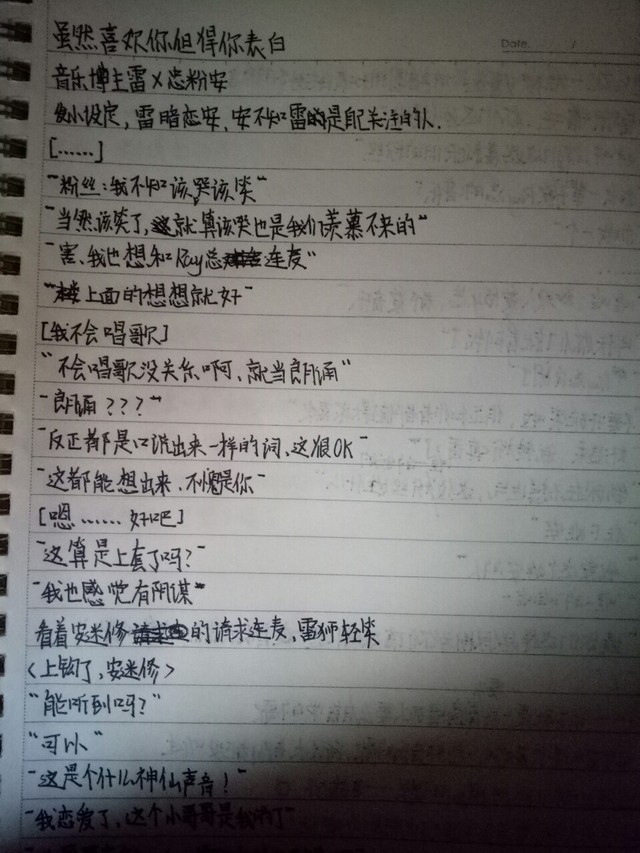 Date.
虽然喜欢你但得你表白
音乐博主雷×忠粉安
发小设定,雷暗恋安,安不知雷是自己关注的人.
[……]
"粉丝:我不知该哭该笑"
"当然该笑了,就算该哭也是我们羡慕不来的"
"害、我也想和Ray总连麦"
"上面的想想就好"
[我不会唱歌]
"不会唱歌没关系啊、就当朗诵"
"朗诵???"
"反正都是口说出来一样的词、这很OK"
"这都能想出来、不愧是你"
[嗯……好吧]
"这算是上套了吗?"
"我也感觉有阴谋"
看着安迷修的请求连麦,雷狮轻笑
<上钩了,安迷修>
"能听到吗?"
"可以"
"这是个什么神仙声音!"
"我恋爱了,这个小哥哥是我的了"